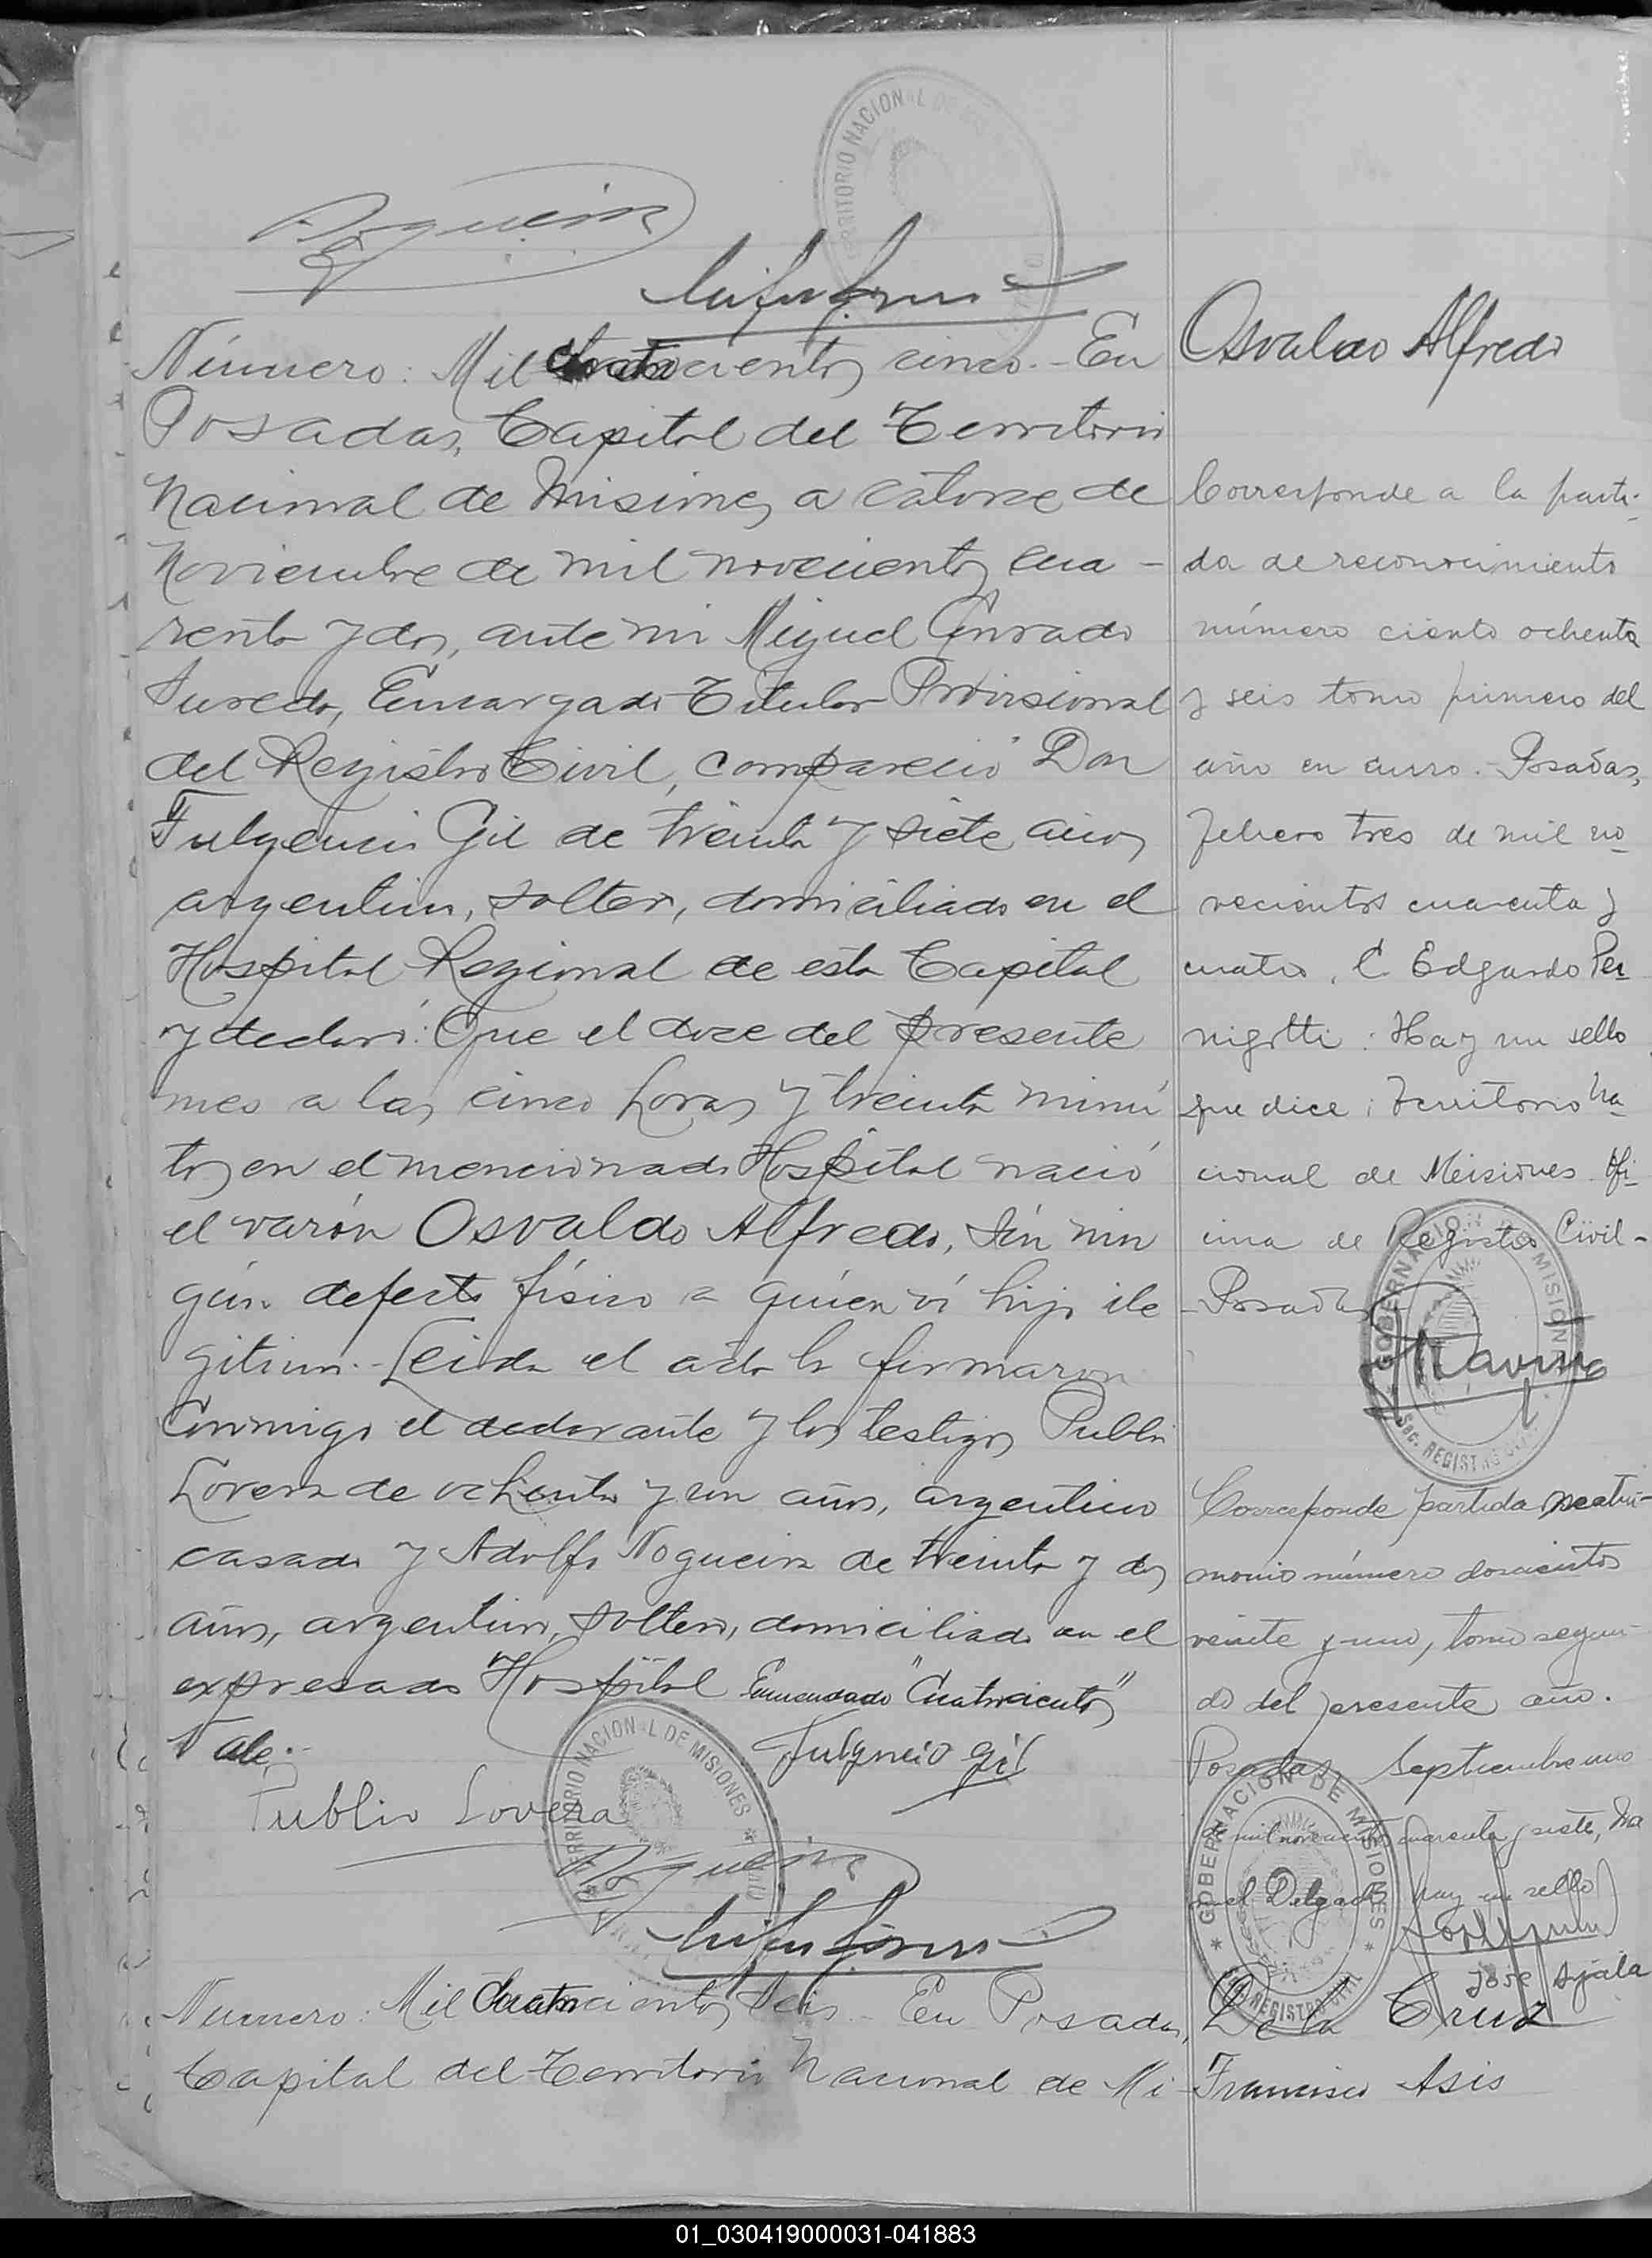 TERRITORIO NACIONAL DE MIS
Nogueira
Número: Mil Cuatrocientos cinco.- En
Posadas, Capital del Territorio
Nacional de Misiones, a catorce de
Noviembre de mil novecientos cua-
renta y dos, ante mi Miguel Conrado
Suredo, Encargado Titular Provisional
del Registro Civil, compareció Don
Fulgencio Gil de treinta y siete años
argentino, soltero, domiciliado en el
Hospital Regional de esta Capital
y declaró: Que el doce del presente
mes a las cinco horas y treinta minu
tos en el mencionado Hospital nació
el varón Osvaldo Alfredo, sin nin
gún defecto físico a quien ví hijo ile
gitimo.- Leida el acta la firmaron
Conmigo el declarante y los testigos Publio
Lovera de ochenta y un años, argentino
casado y Adolfo Nogueira de treinta y dos
años, argentino, soltero, domiciliado en el
expresado Hospital Enmendado "Cuatrocientos"
Vale.-
Fulgncio Gil
Publio Lovera
TERRITORIO NACIONAL DE MISIONES
Nogueira
Numero: Mil Cuatrocientos Seis.- En Posadas,
Capital del Territorio Nacional de Mi
Osvaldo Alfredo
Corresponde a la parti-
da de reconocimiento
número ciento ochenta
y seis tomo primero del
año en curso.- Posadas,
Febrero tres de mil no
vecientos cuarenta y
cuatro. C Edgardo Per
nigotti: Hay un sello
que dice: Territorio Na
cional de Meisiones Ofi
cina de Registro Civil-
-Posadas-
GOBERNACION DE MISIONES
SEC. REGISTRO CIVIL
Corresponde partida matri-
monio número doscientos
veinte y uno, tomo segun-
do del presente año.
Posadas, Septiembre uno
de mil novecientos cuarenta y siete, Ma
nuel Delgado hay un sello
GOBERNACION DE MISIONES
REGISTRO CIVIL
Jose Ayala
De la Cruz
Francisco Asis
01_030419000031-041883